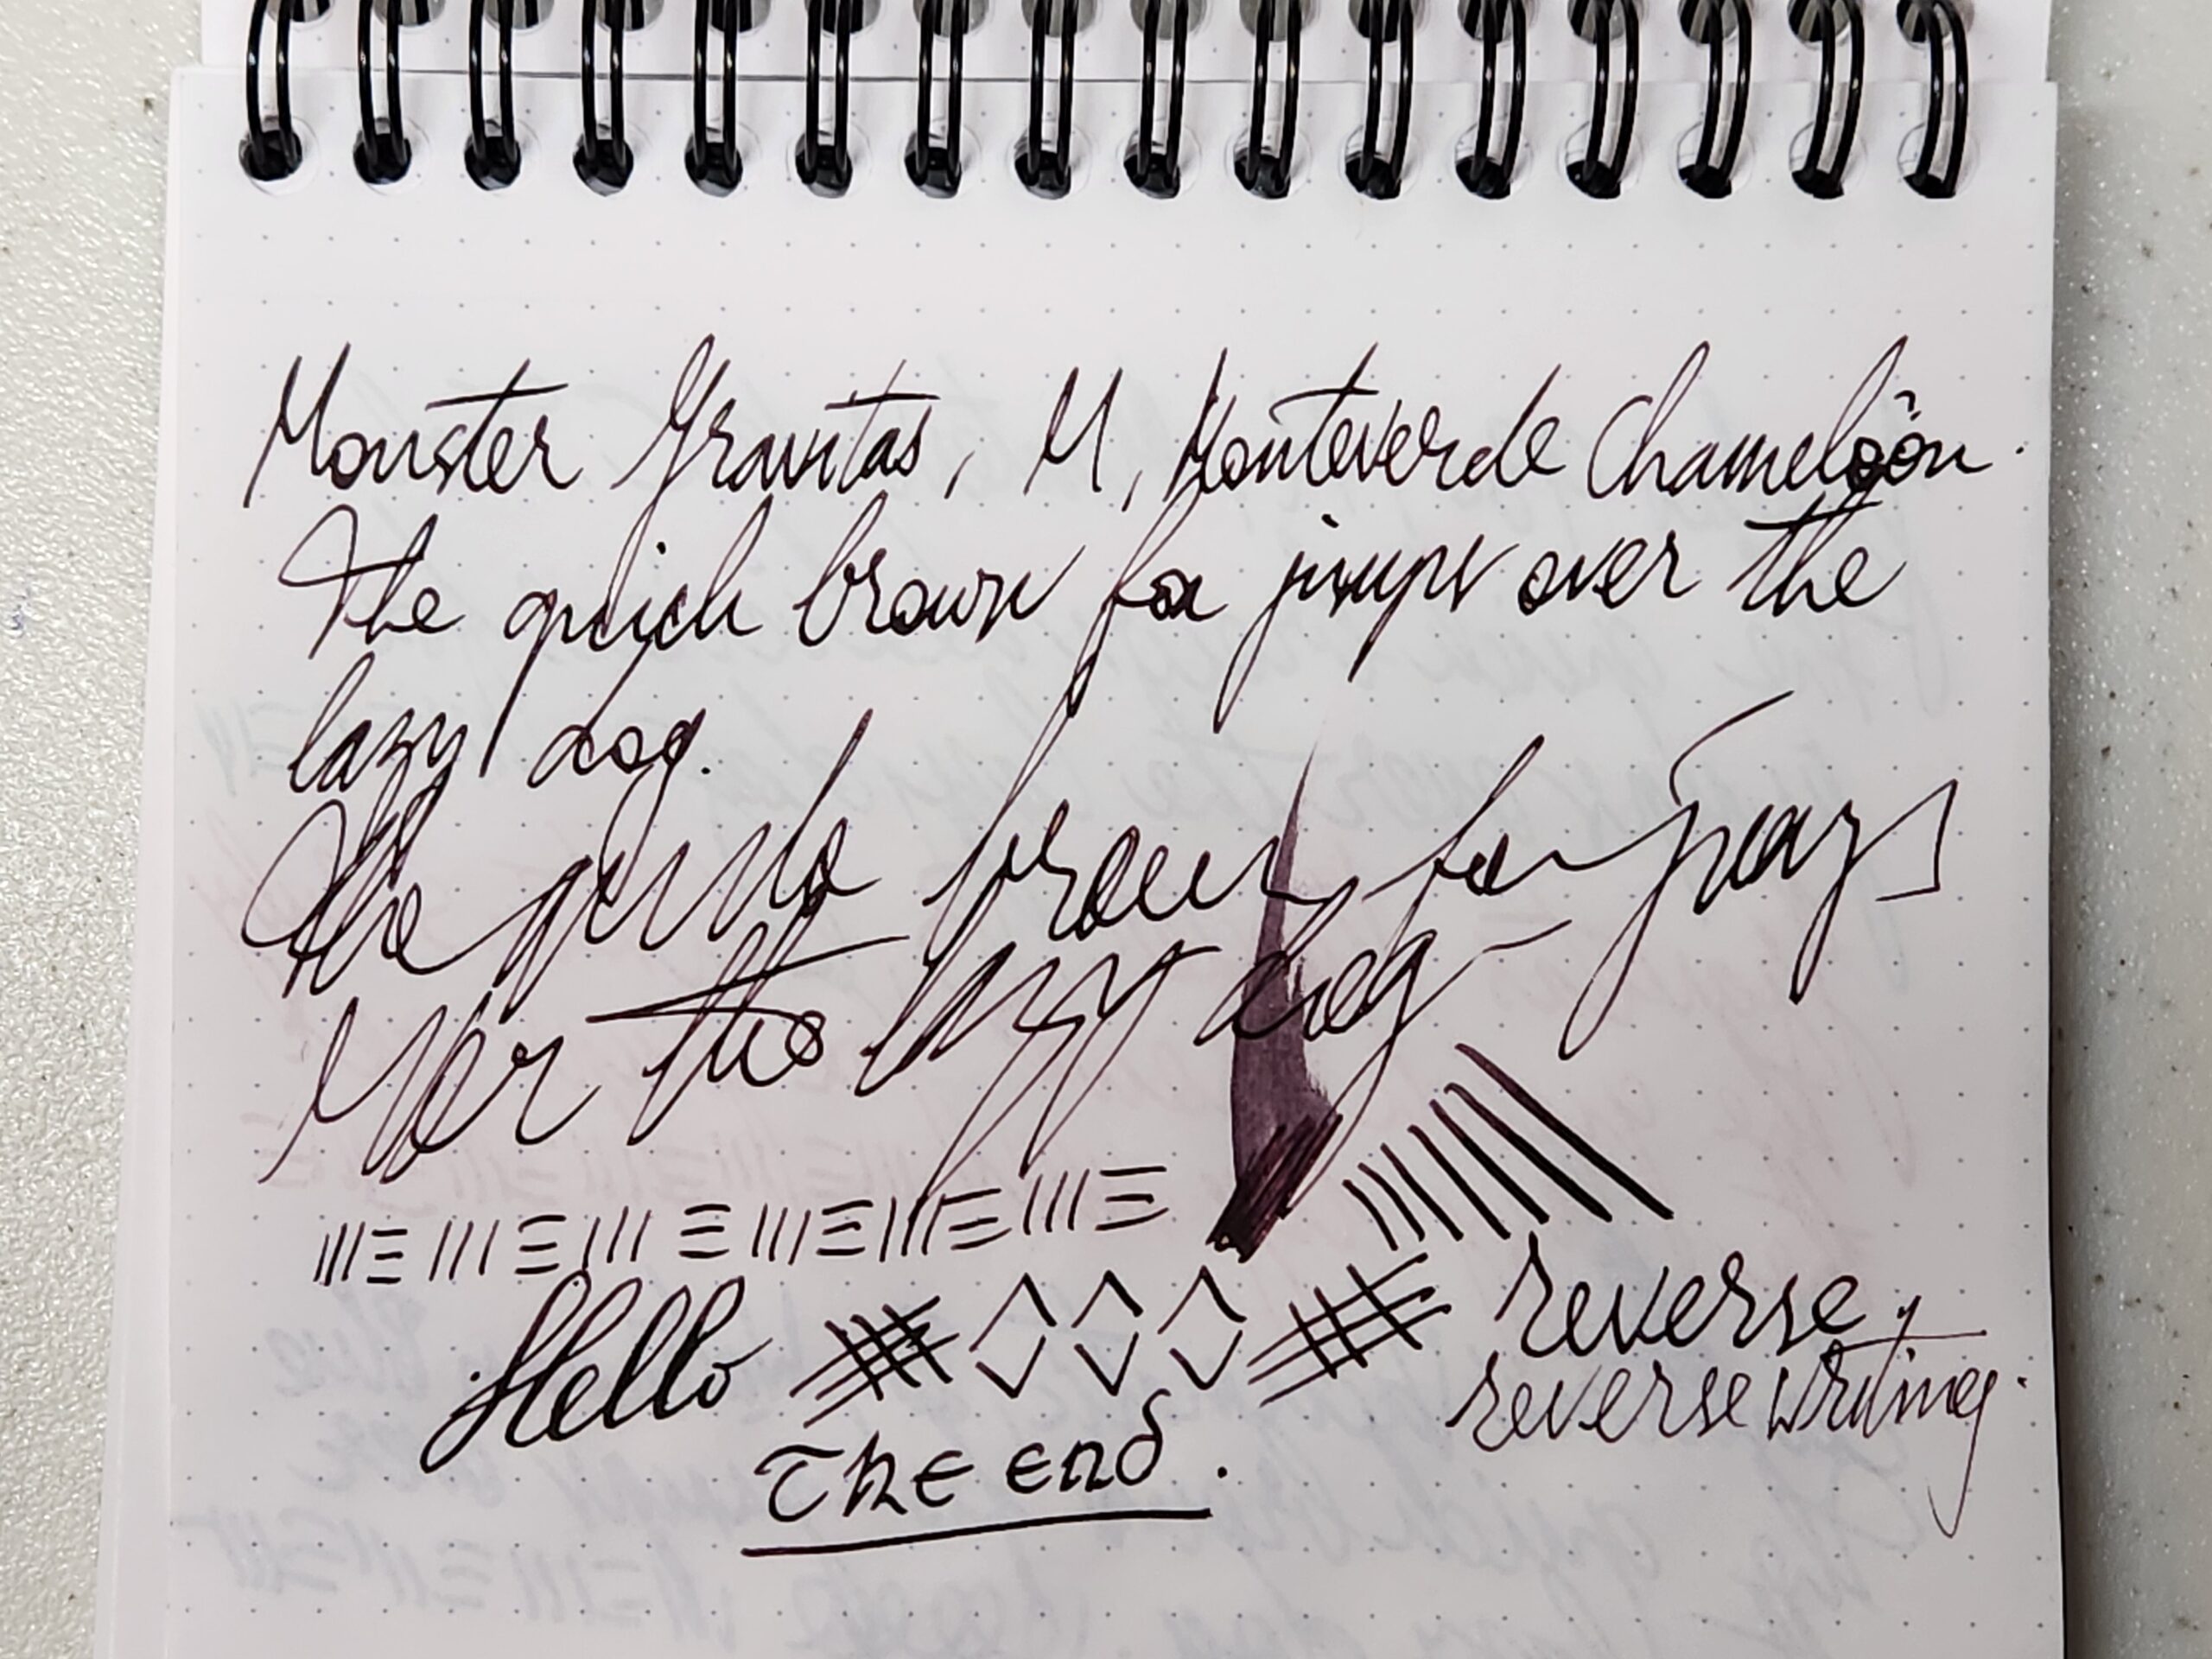 Monster Gravitas, M, Monteverde Chameleon.
The quick brown fox jumps over the
lazy dog.
The quick brown fox jumps
over the lazy dog
Hello
reverse,
reverse writing.
The end.